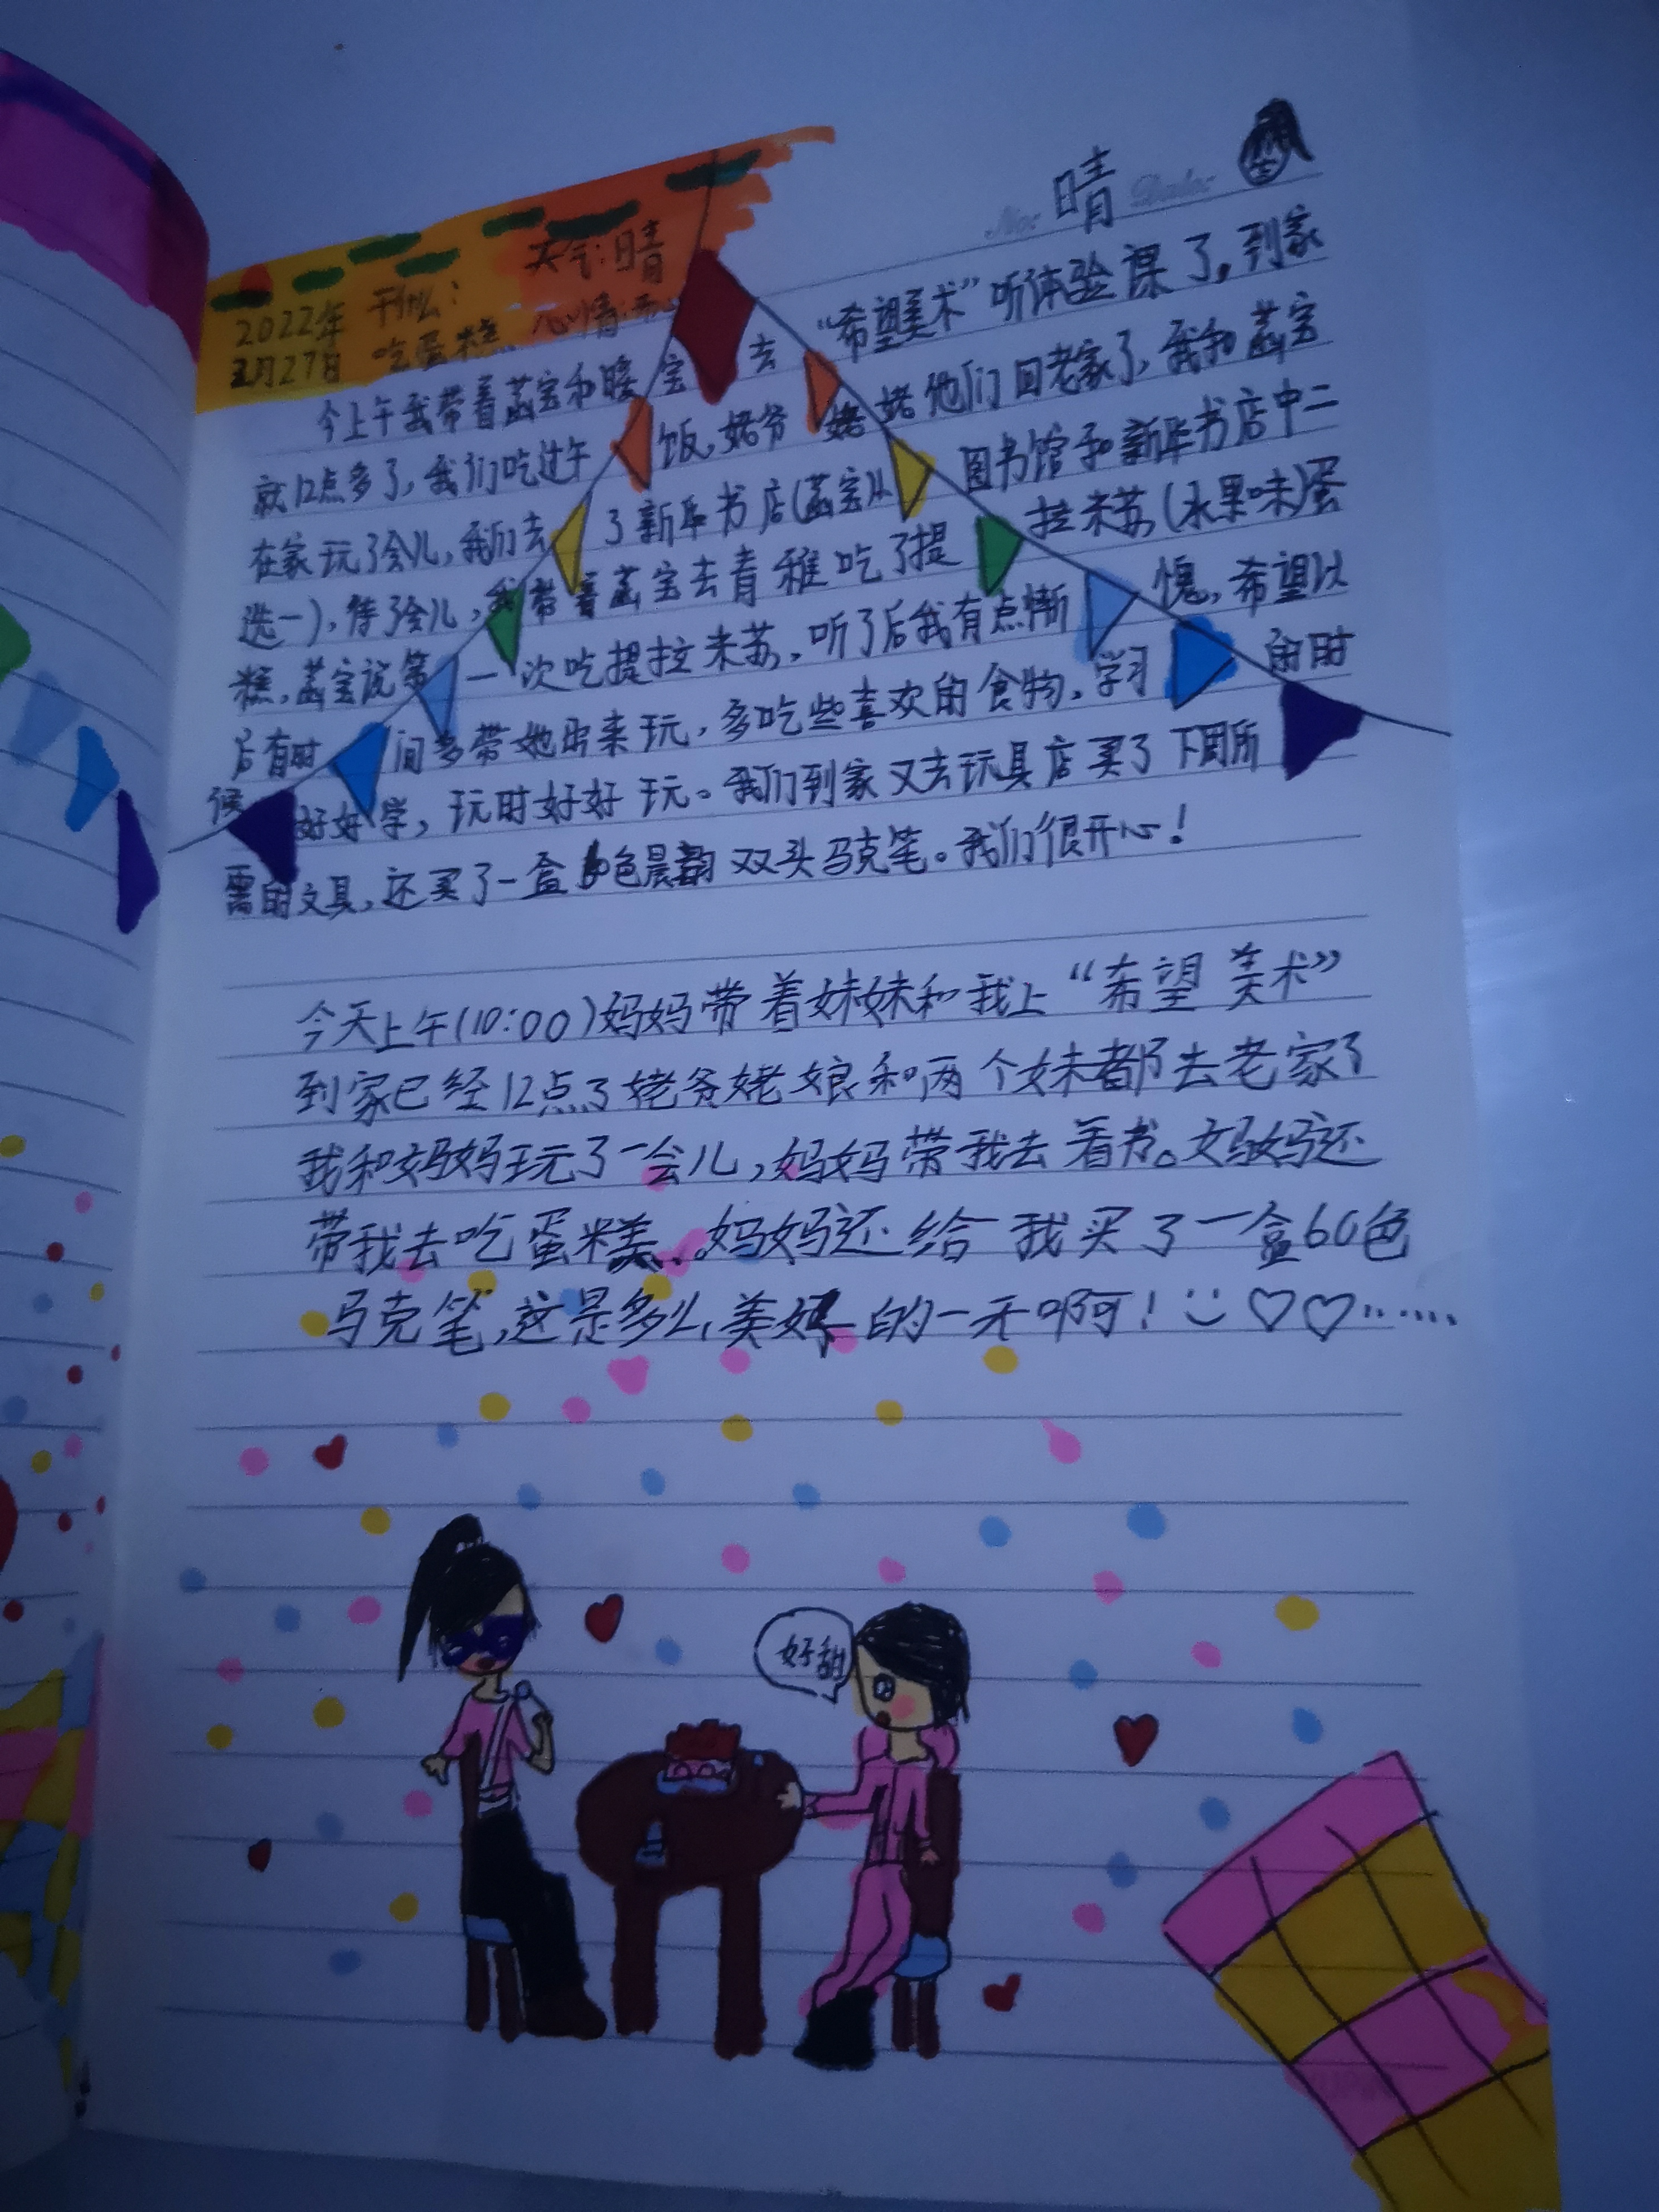 No: 晴 Date:
天气:晴
2022年 干什么:
3月27日 吃蛋糕 心情:开心
今上午我带着菡宝和暖宝去“希望美术”听体验课了,到家
就12点多了,我们吃过午饭,姥爷姥姥他们回老家了,我和菡宝
在家玩了会儿,我们去了新华书店(菡宝从图书馆和新华书店中二
选一),停了会儿,我带着菡宝去青雅吃了提拉米苏(水果味)蛋
糕,菡宝说第一次吃提拉米苏,听了后我有点惭愧,希望以
后有时间多带她出来玩,多吃些喜欢的食物,学习的时
候好好学,玩时好好玩。我们到家又去玩具店买了下周所
需的文具,还买了一盒色晨韵双头马克笔。我们很开心!
今天上午(10:00)妈妈带着妹妹和我上“希望美术”
到家已经12点了姥爷姥娘和两个妹都去老家了
我和妈妈玩了一会儿,妈妈带我去看书。妈妈还
带我去吃蛋糕、妈妈还给我买了一盒60色
马克笔,这是多么美好的一天啊!……
好甜